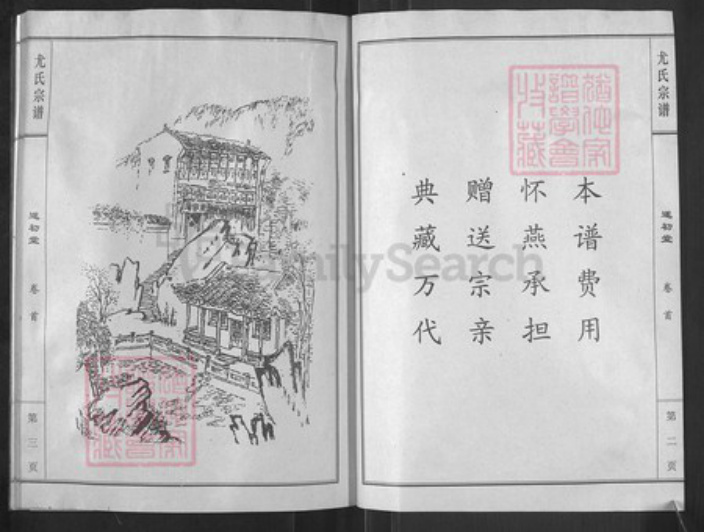 尤氏宗谱
遂初堂
卷首
第二页
本谱费用
怀燕承担
赠送宗亲
典藏万代
FamilySearch
尤氏宗谱
遂初堂
卷首
第三页